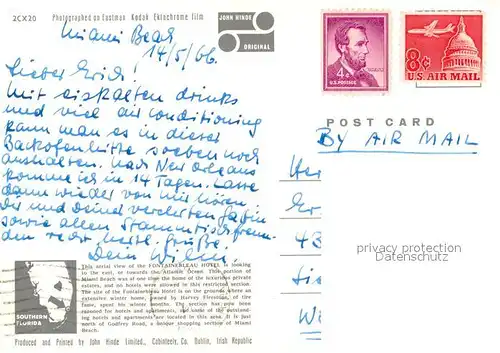 2CX20 Photographed on Eastman Kodak Ektachrome film
JOHN HINDE
ORIGINAL
4¢
U.S. POSTAGE
8¢
U.S. AIR MAIL
Miami Beach
14/5/66.
Lieber Erich!
Mit eiskalten drinks
und viel air conditioning
kann man es in dieser
Backofenhitze soeben noch
aushalten. Nach New Orleans
komme ich in 14 Tagen. Lasse
dann wieder von mir hören.
Dir und Deiner verehrten Gattin
sowie allen Stammtischfreun-
den recht herzl. Grüße.
Dein
POST CARD
BY AIR MAIL
Her
Er.
43
Wi
privacy protection
Datenschutz
SOUTHERN
FLORIDA
This aerial view of the FONTAINEBLEAU HOTEL is looking
to the east, or towards the Atlantic Ocean. This portion of
Miami Beach was at one time the home of the luxurious private
estates, and no hotels were allowed in this restricted section.
The site of the Fontainebleau Hotel is on the grounds where an
extensive winter home, owned by Harvey Firestone, of tire
fame, spent his winters. The section has now been
zoned for hotels and apartments, and some of the outstand-
ing hotels and apartments are located in this area. It is just
north of Godfrey Road, a unique shopping section of Miami
Beach.
Produced and Printed by John Hinde Limited., Cabinteely, Co. Dublin, Irish Republic